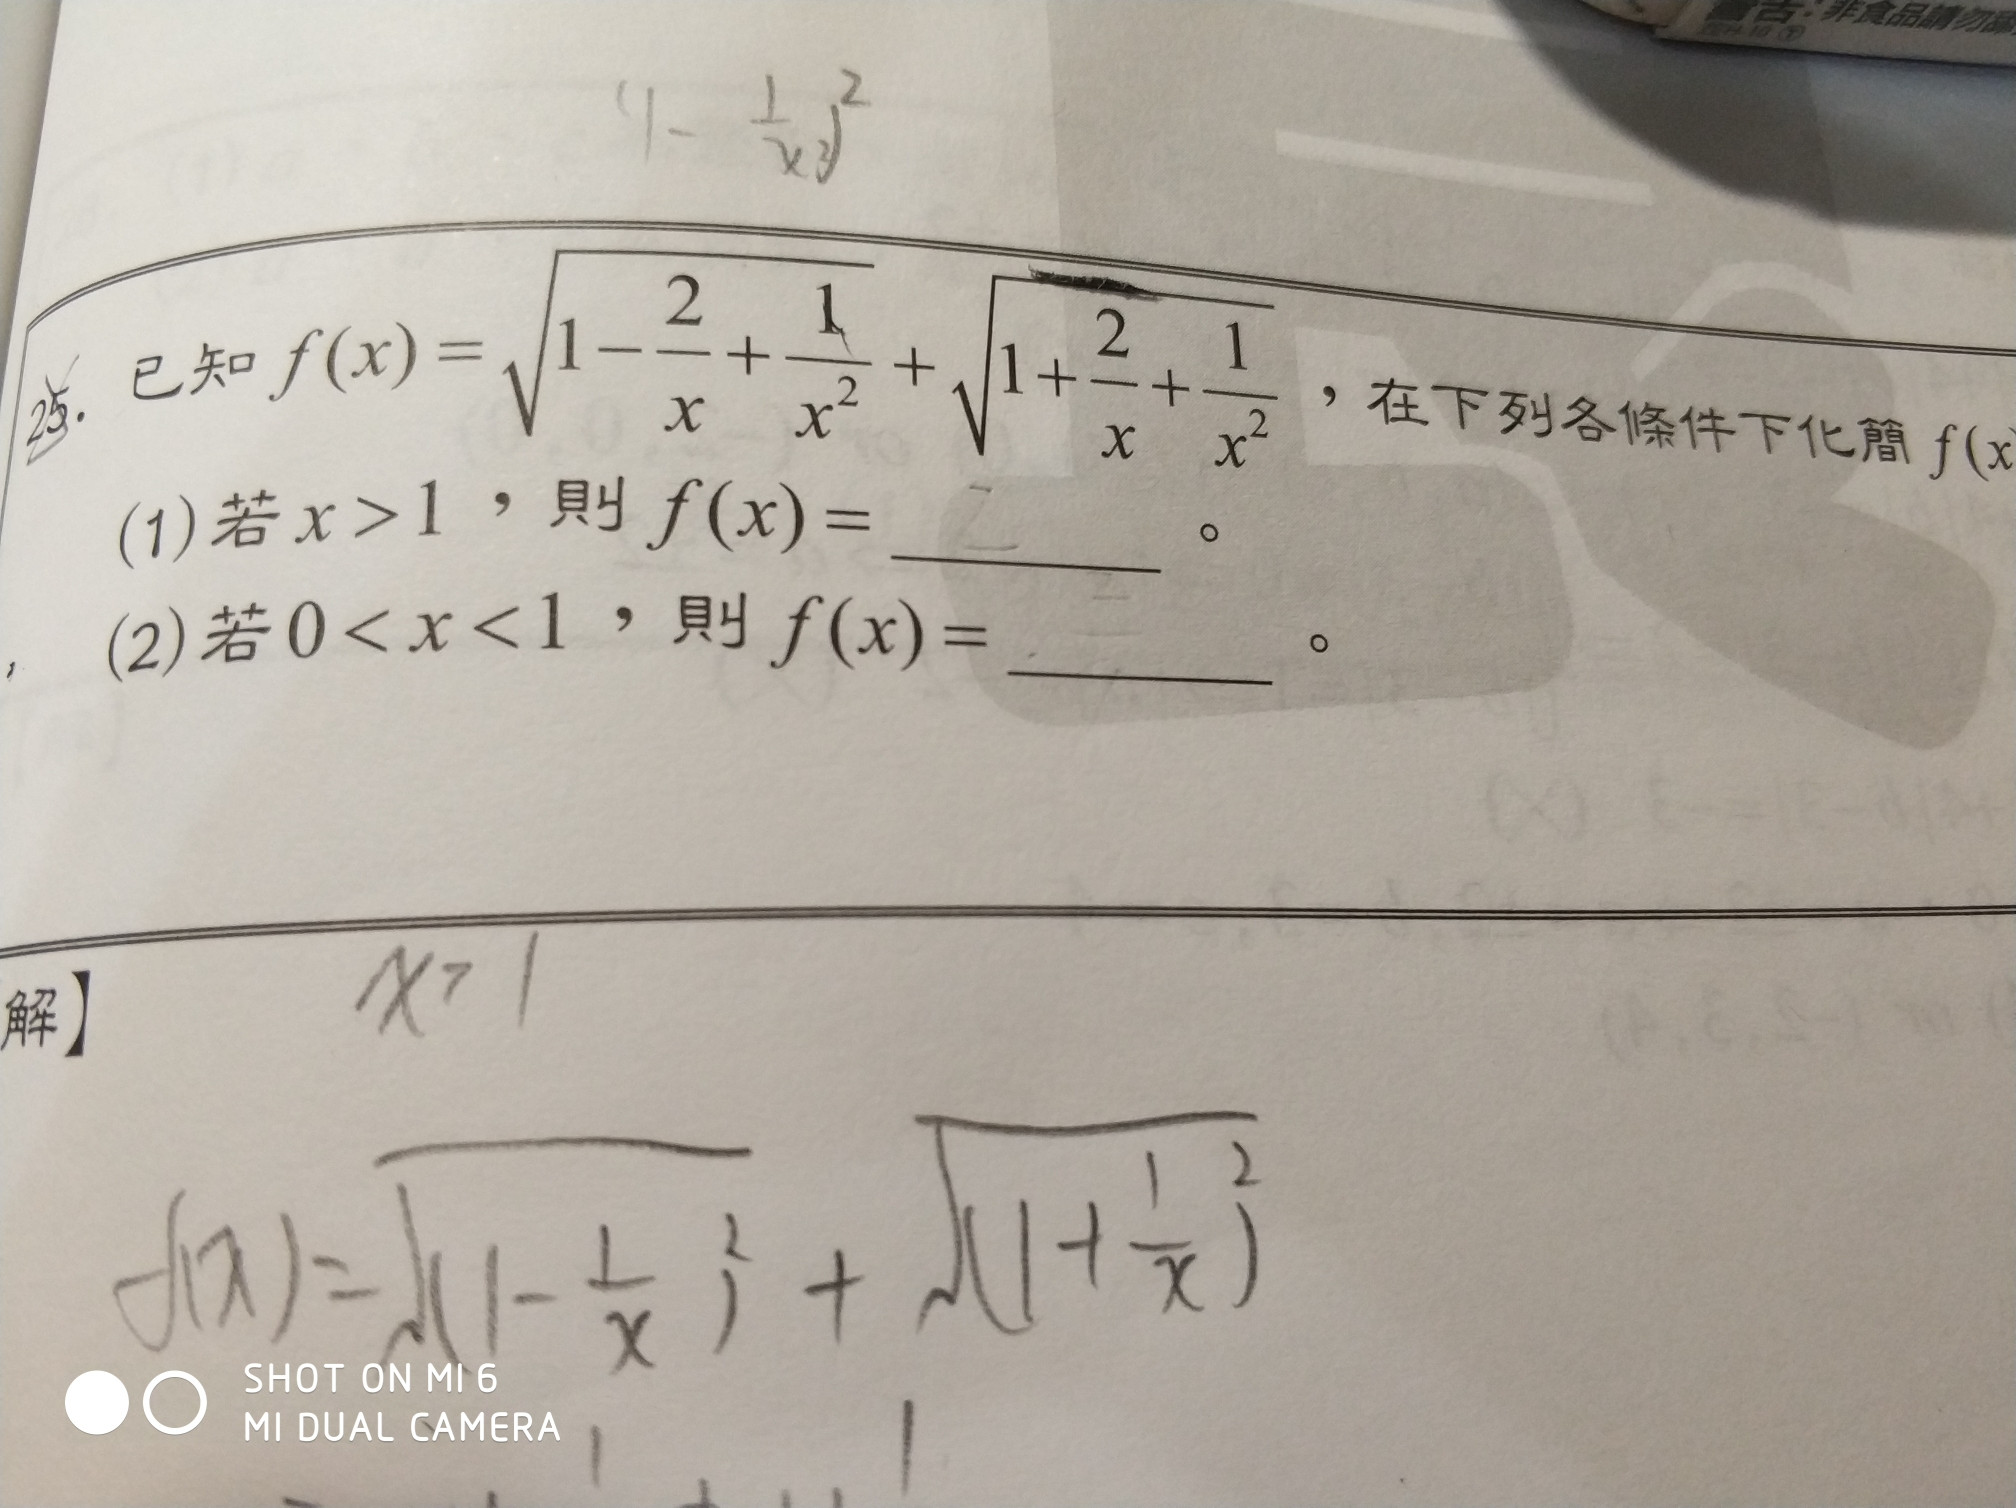 警告:非食品請勿
(1 - 1/x²)²
25. 已知 f(x) = √(1 - 2/x + 1/x²) + √(1 + 2/x + 1/x²),在下列各條件下化簡 f(x)
(1) 若 x > 1,則 f(x) = 2 。
(2) 若 0 < x < 1,則 f(x) = ____ 。
解】
x > 1
f(x) = √(1 - 1/x)² + √(1 + 1/x)²
SHOT ON MI 6
MI DUAL CAMERA